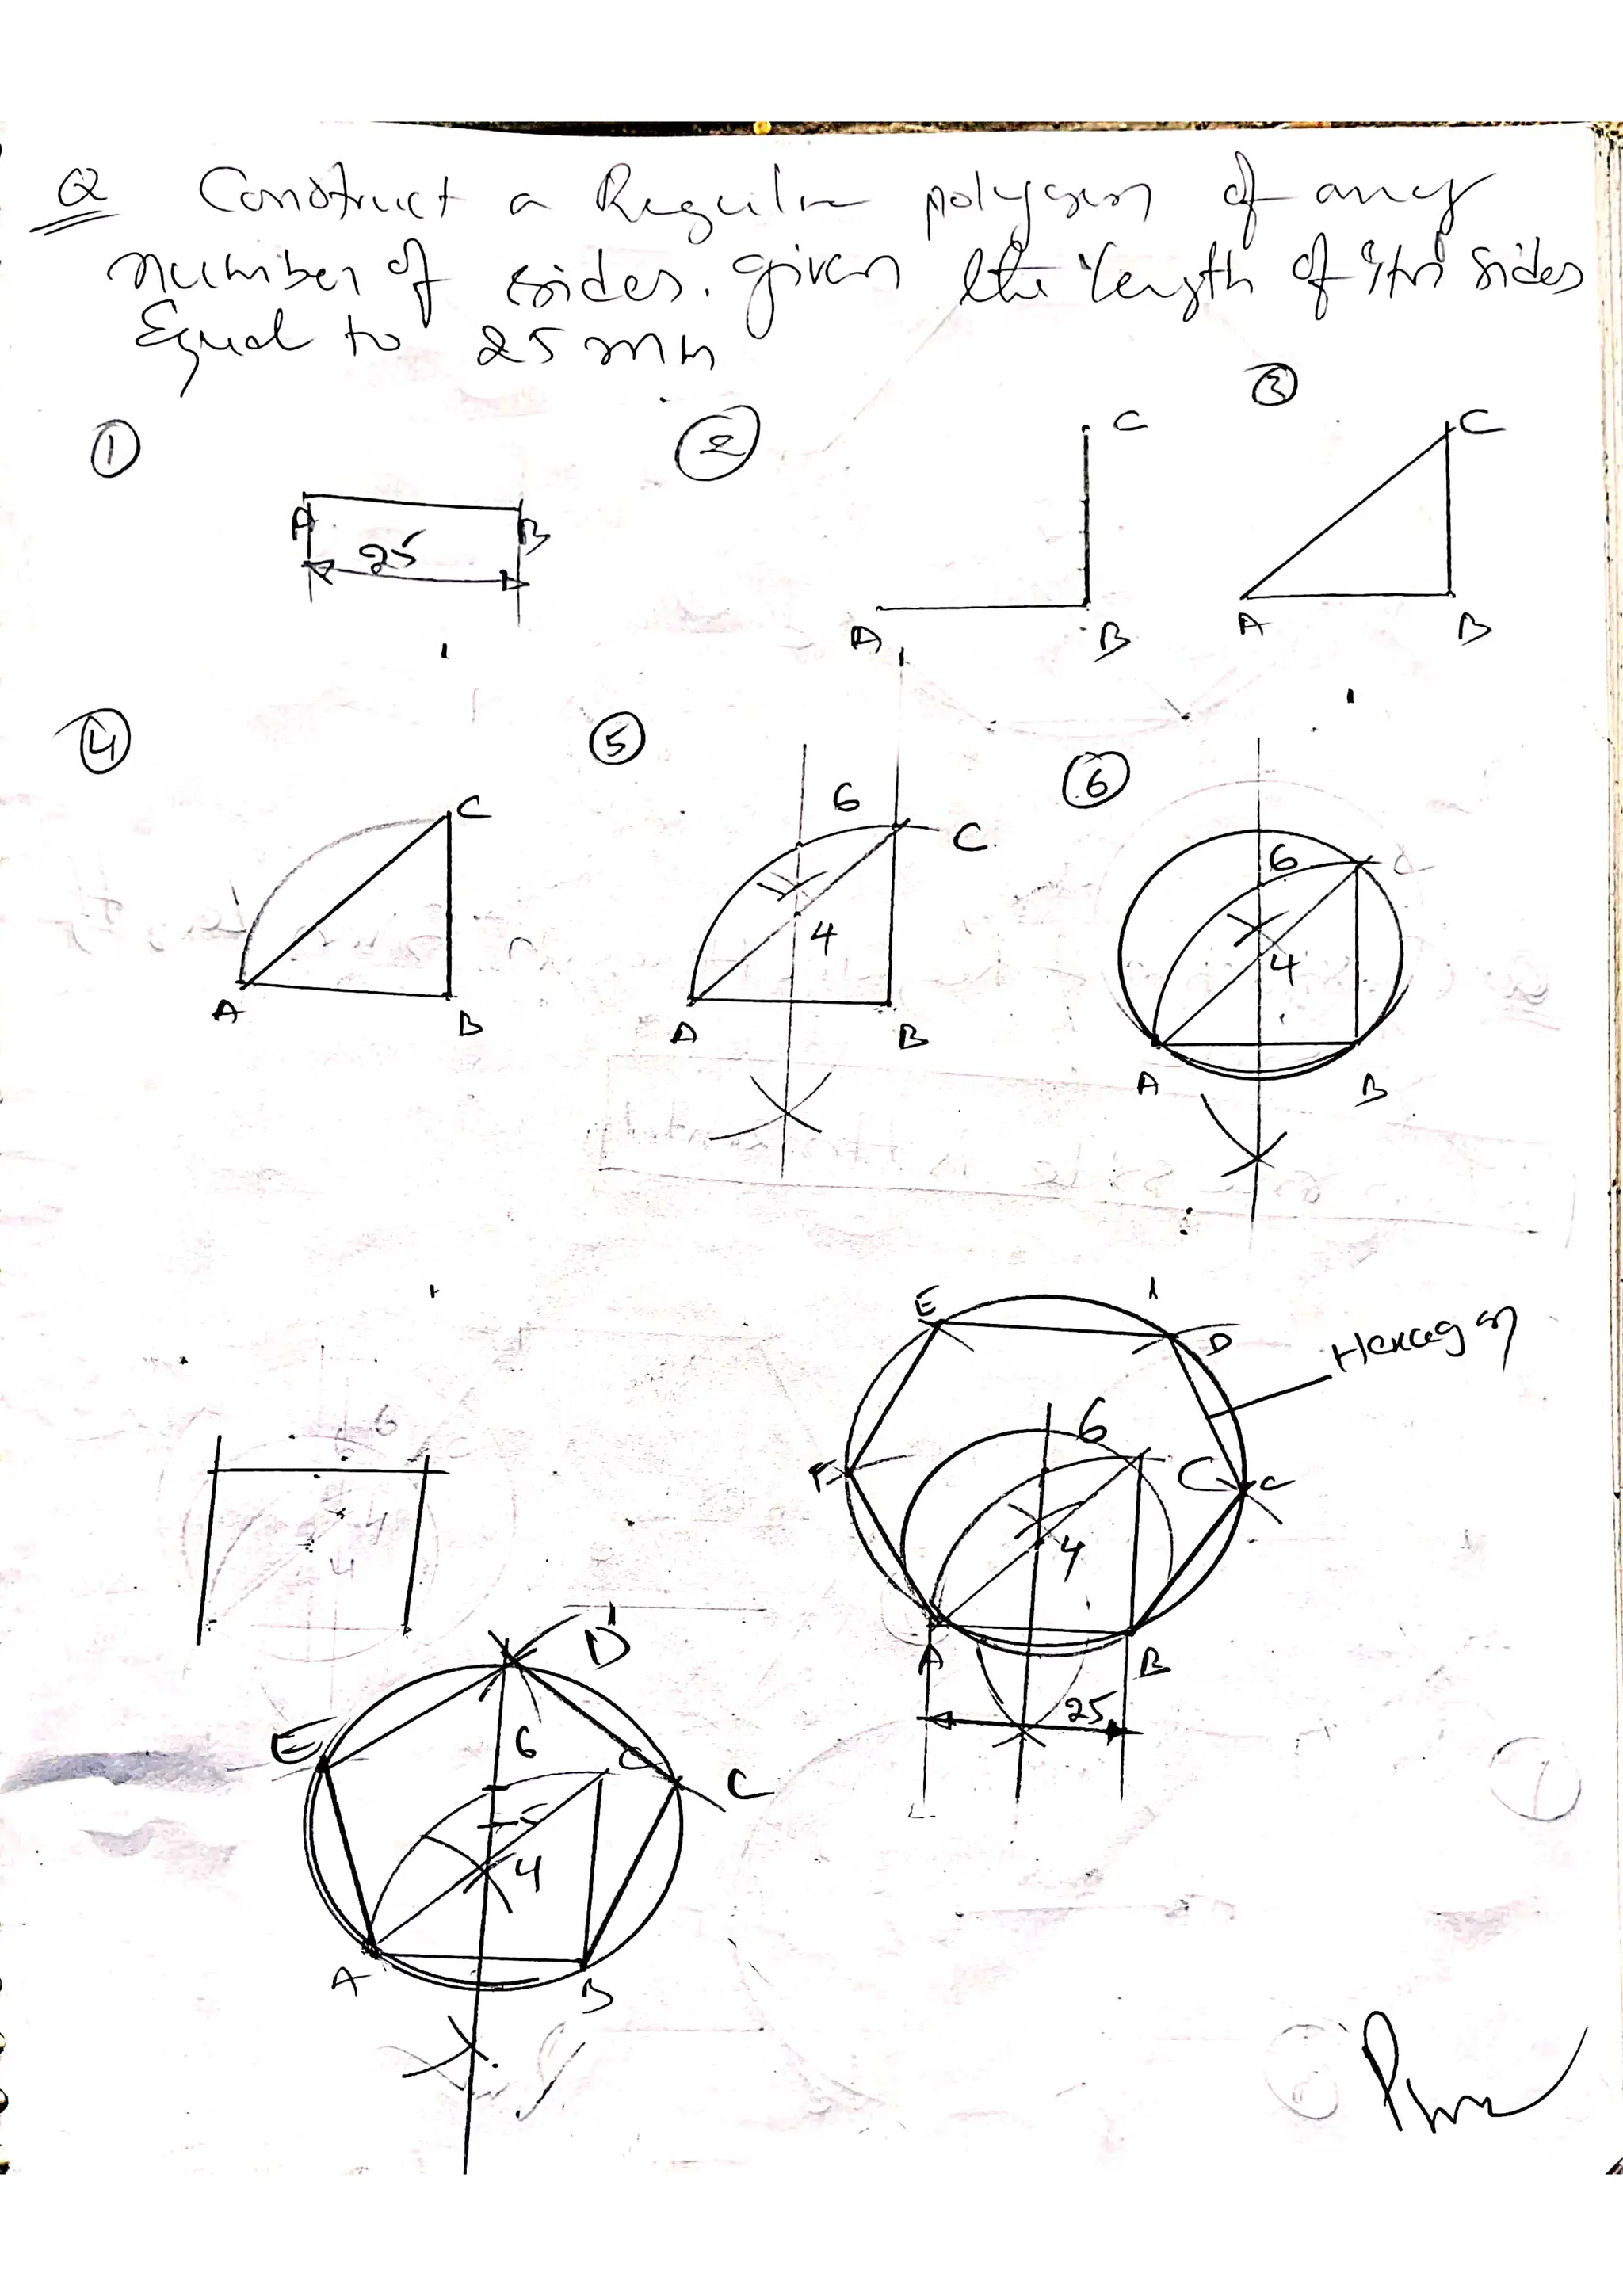 Q Construct a Regular polygon of any
number of sides. given the length of its sides
Equal to 25 mm
① ② ③
A B
25
C
A B
C
A B
④ ⑤ ⑥
C
A B
6
C
4
A B
6
C
4
A B
E D
Hexagon
6
F C C
4
A B
25
D
E
6
C C
5
4
A B